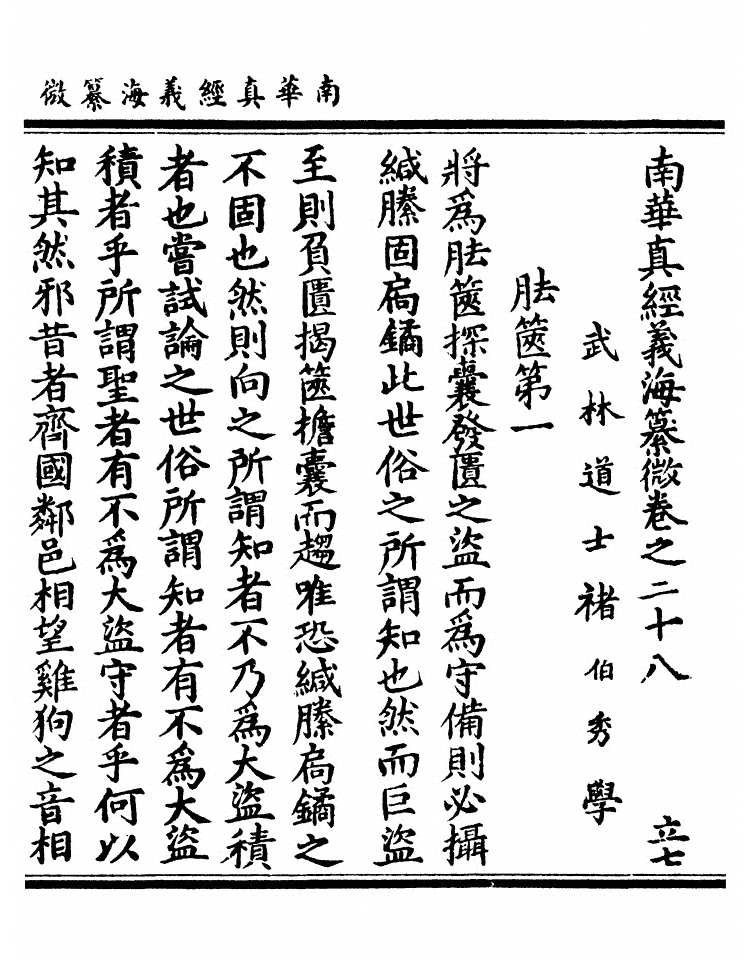 南華真經義海纂微
南華真經義海纂微卷之二十八 立七
武林道士褚伯秀學
胠篋第一
將為胠篋探囊發匱之盜而為守備則必攝
緘縢固扃鐍此世俗之所謂知也然而巨盜
至則負匱揭篋擔囊而趨唯恐緘縢扃鐍之
不固也然則向之所謂知者不乃為大盜積
者也嘗試論之世俗所謂知者有不為大盜
積者乎所謂聖者有不為大盜守者乎何以
知其然邪昔者齊國鄰邑相望雞狗之音相